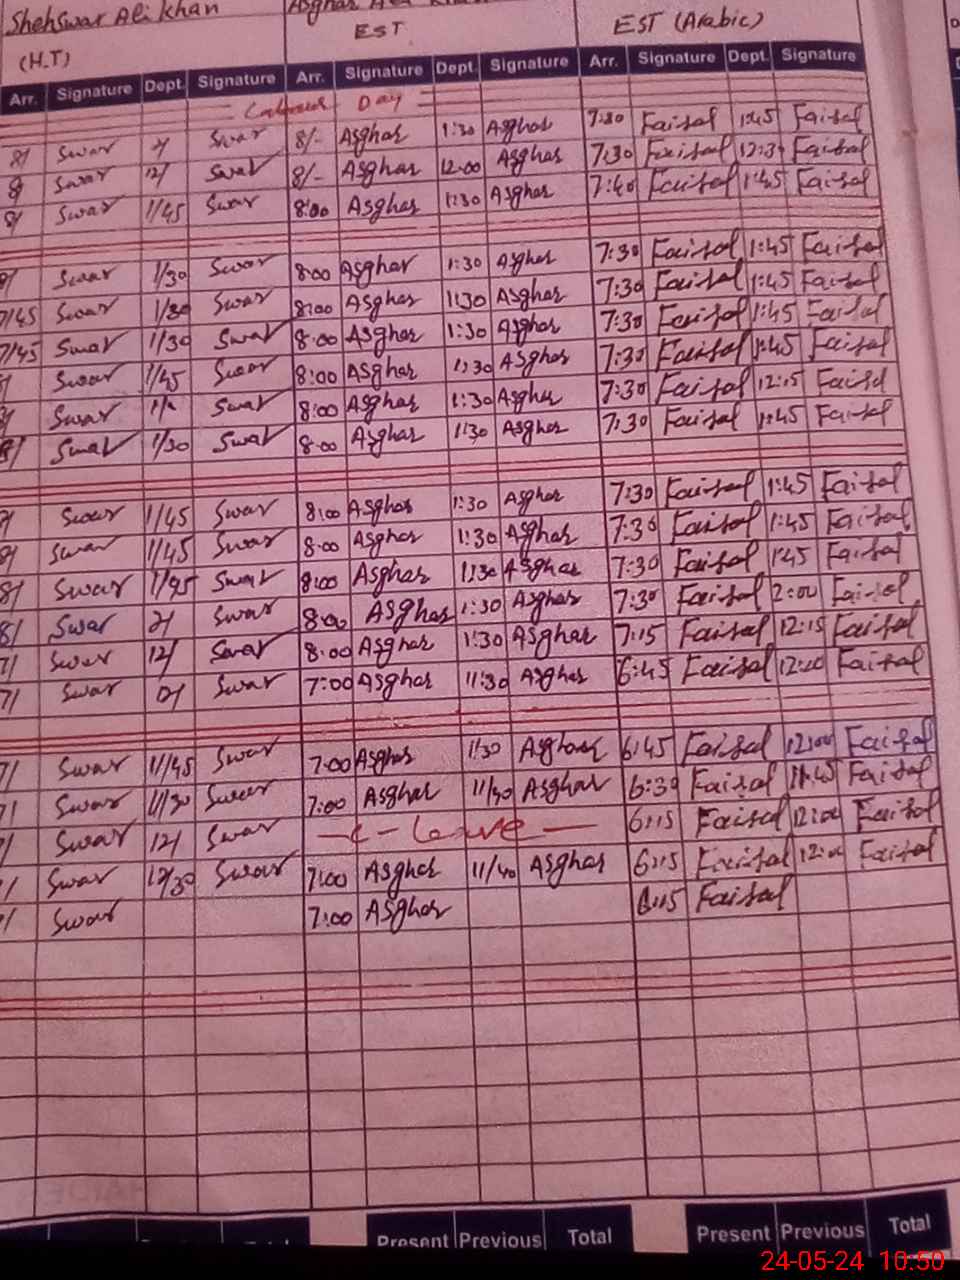 Shehswar Ali Khan Asghar Ali Khan
(H.T) EST EST (Arabic)
Arr. Signature Dept. Signature Arr. Signature Dept. Signature Arr. Signature Dept. Signature
Labour Day
8/ Swar Swar 8/- Asghar 1:30 Asghar 7:30 Faisal 1:45 Faisal
8/ Swar 12/ Swar 8/- Asghar 12:00 Asghar 7:30 Faisal 12:3 Faisal
8/ Swar 1/45 Swar 8:00 Asghar 1:30 Asghar 7:40 Faisal 1:45 Faisal
8/ Swar 1/30 Swar 8:00 Asghar 1:30 Asghar 7:30 Faisal 1:45 Faisal
7/45 Swar 1/30 Swar 8:00 Asghar 1:30 Asghar 7:30 Faisal 1:45 Faisal
7/45 Swar 1/30 Swar 8:00 Asghar 1:30 Asghar 7:30 Faisal 1:45 Faisal
Swar 1/45 Swar 8:00 Asghar 1:30 Asghar 7:30 Faisal 1:45 Faisal
Swar Swar 8:00 Asghar 1:30 Asghar 7:30 Faisal 12:15 Faisal
8/ Swar 1/30 Swar 8:00 Asghar 1:30 Asghar 7:30 Faisal 1:45 Faisal
Swar 1/45 Swar 8:00 Asghar 1:30 Asghar 7:30 Faisal 1:45 Faisal
8/ Swar 1/45 Swar 8:00 Asghar 1:30 Asghar 7:30 Faisal 1:45 Faisal
8/ Swar 1/45 Swar 8:00 Asghar 1:30 Asghar 7:30 Faisal 1:45 Faisal
8/ Swar 2/ Swar 8:00 Asghar 1:30 Asghar 7:30 Faisal 2:00 Faisal
7/ Swar 12/ Swar 8:00 Asghar 1:30 Asghar 7:15 Faisal 12:15 Faisal
7/ Swar Swar 7:00 Asghar 11:30 Asghar 6:45 Faisal 12:00 Faisal
7/ Swar 11/45 Swar 7:00 Asghar 1130 Asghar 6:45 Faisal 12:00 Faisal
7/ Swar 11/30 Swar 7:00 Asghar 11/30 Asghar 6:30 Faisal 11:45 Faisal
Swar 12/ Swar - C - Leave - 6:15 Faisal 12:00 Faisal
Swar 12/30 Swar 7:00 Asghar 11/40 Asghar 6:15 Faisal 12:00 Faisal
Swar 7:00 Asghar 6:15 Faisal
Present Previous Total Present Previous Total
24-05-24 10:50